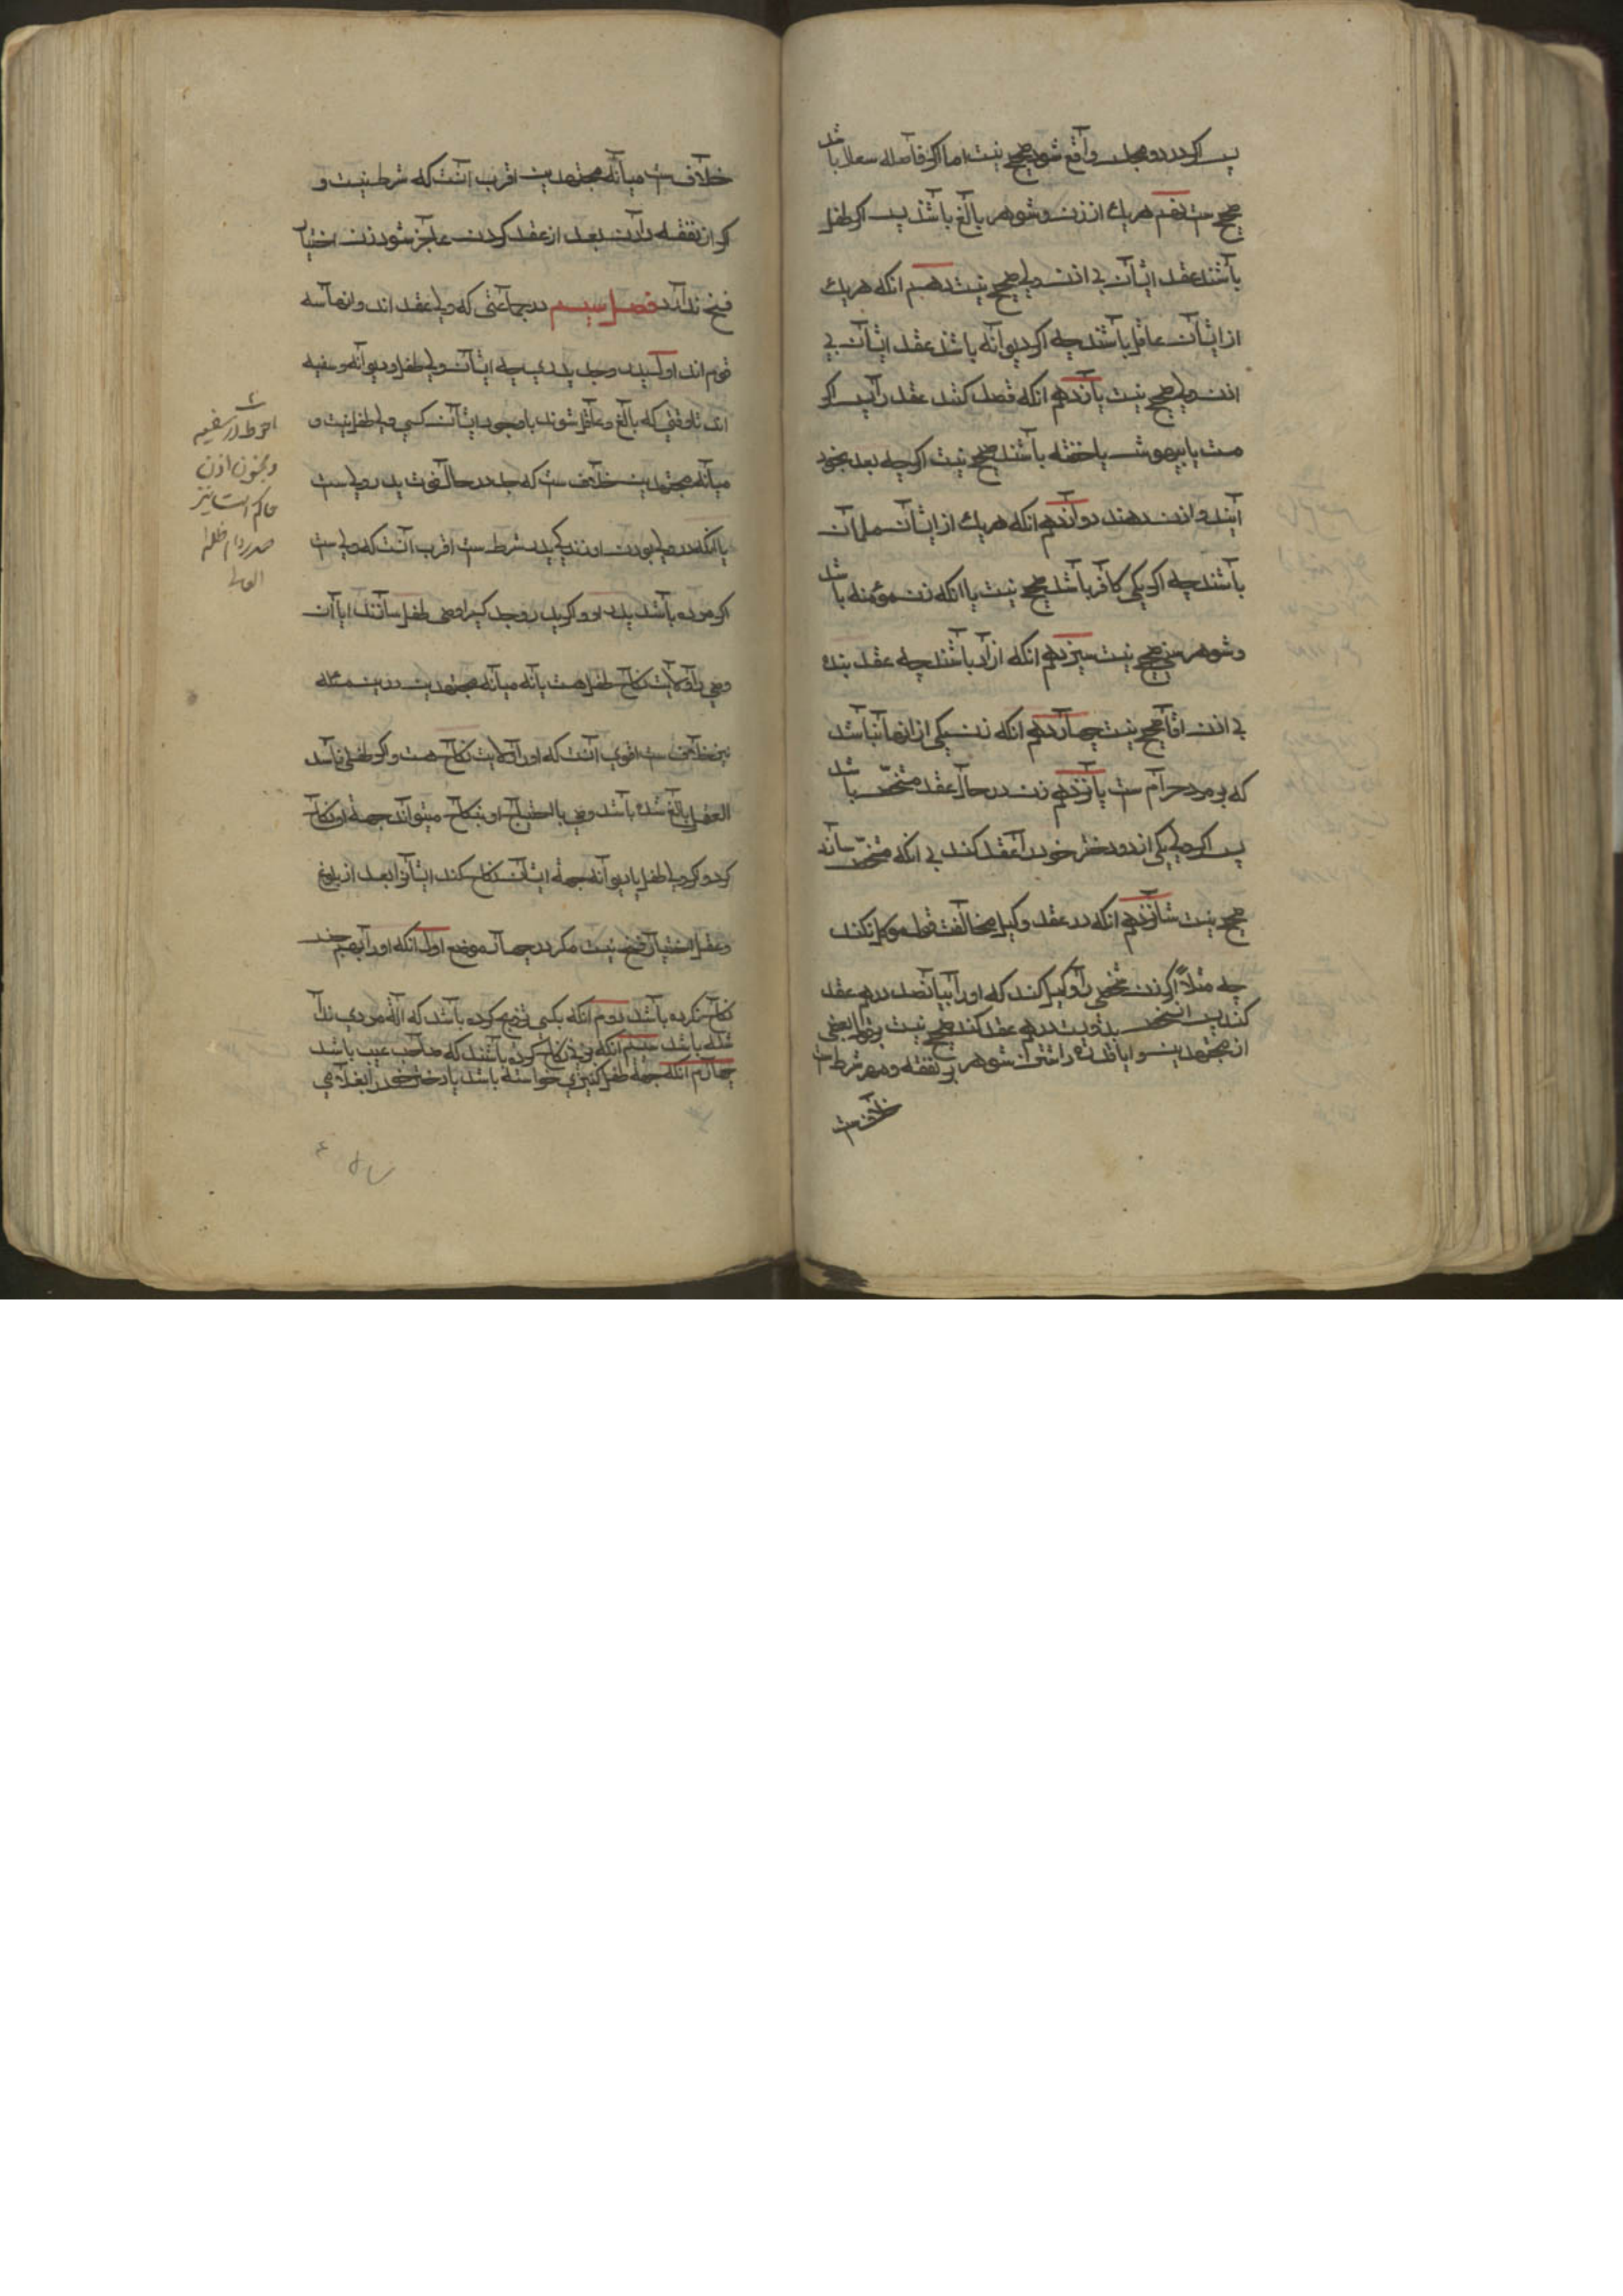 پس اگر در دو مجلس واقع شود صحیح نیست اما اگر فاصله سهلا باشد
صحیح ست نهم هریك از زن و شوهر بالغ باشند پس اگر طفل
باشند عقد ایشان بی اذن ولی صحیح نیست دهم انکه هریك
از ایشان عاقل باشند چه اگر دیوانه باشد عقد ایشان بی
اذن ولی صحیح نیست یازدهم انکه قصد کنند عقد را پس اگر
مست یا بیهوش یا خفته باشند صحیح نیست اگرچه بعد بخود
آیند و اذن دهند دوازدهم انکه هریك از ایشان مسلمان
باشند چه اگر یکی کافر باشد صحیح نیست یا انکه زن مؤمنه باشد
و شوهر سنی صحیح نیست سیزدهم انکه ازاد باشند چه عقد بنده
بی اذن اقا صحیح نیست چهاردهم انکه زن یکی از انها نباشد
که بر مرد حرام ست پانزدهم زن در حال عقد مشخص باشد
پس اگر ولی یکی از دو دختر خود را عقد کند بی انکه مشخص سازد
صحیح نیست شانزدهم انکه در عقد وکیل مخالفت قول موکل نکند
چه مثلاً اگر زن شخصی را وکیل کند که او را بپانصد درهم عقد
کند پس انشخص بدویست درهم عقد کند صحیح نیست و نزد بعضی
از مجتهدین و ایا قدرة داشتن شوهر بر نفقه و مهر شرط ست
خلاف ست
خلاف ست میانه مجتهدین اقرب انست که شرط نیست و
اگر از نفقه دادن بعد از عقد کردن عاجز شود زن اختیار
فسخ ندارد فصل سیم در جماعتی که ولی عقد اند و انها سه
قوم اند اول پدر و جد پدری چه ایشان ولی طفل و دیوانه و سفیه
اند تا وقتی که بالغ و عاقل شوند با وجود ایشان کسی ولی طفل نیست و
میانه مجتهدین خلاف ست که جد در حال فوت پدر ولی ست
یا انکه در ولی بودن او زندگی پدر شرط ست اقرب انست که ولی ست
اگر مرده باشد پدر او و اگر پدر و جد کسی را وصی طفل سازند ایا ان
وصی را ولایت نکاح طفل هست یا نه میانه مجتهدین درین مسئله
نیز خلاف ست اقوی انست که او را ولایت نکاح هست و اگر طفلی فاسد
العقل بالغ شده باشد وصی با احتیاج او بنکاح میتواند جهة او نکاح
کرد و اگر ولی طفل یا دیوانه جهة ایشان نکاح کند ایشانرا بعد از بلوغ
و عقل اختیار فسخ نیست مگر در چهار موضع اول انکه او را بمهر چند
نکاح نکرده باشد دوم انکه بکسی تزویج کرده باشد که آلة مردی ندا
شته باشد سیم انکه بزنی نکاح کرده باشند که صاحب عیب باشد
چهارم انکه جهة طفل کنیزی خواسته باشد یا دختر خود را بغلامی
احوط در سفیه
و مجنون اذن
حاکم است نیز
صدر دام ظله
العالی